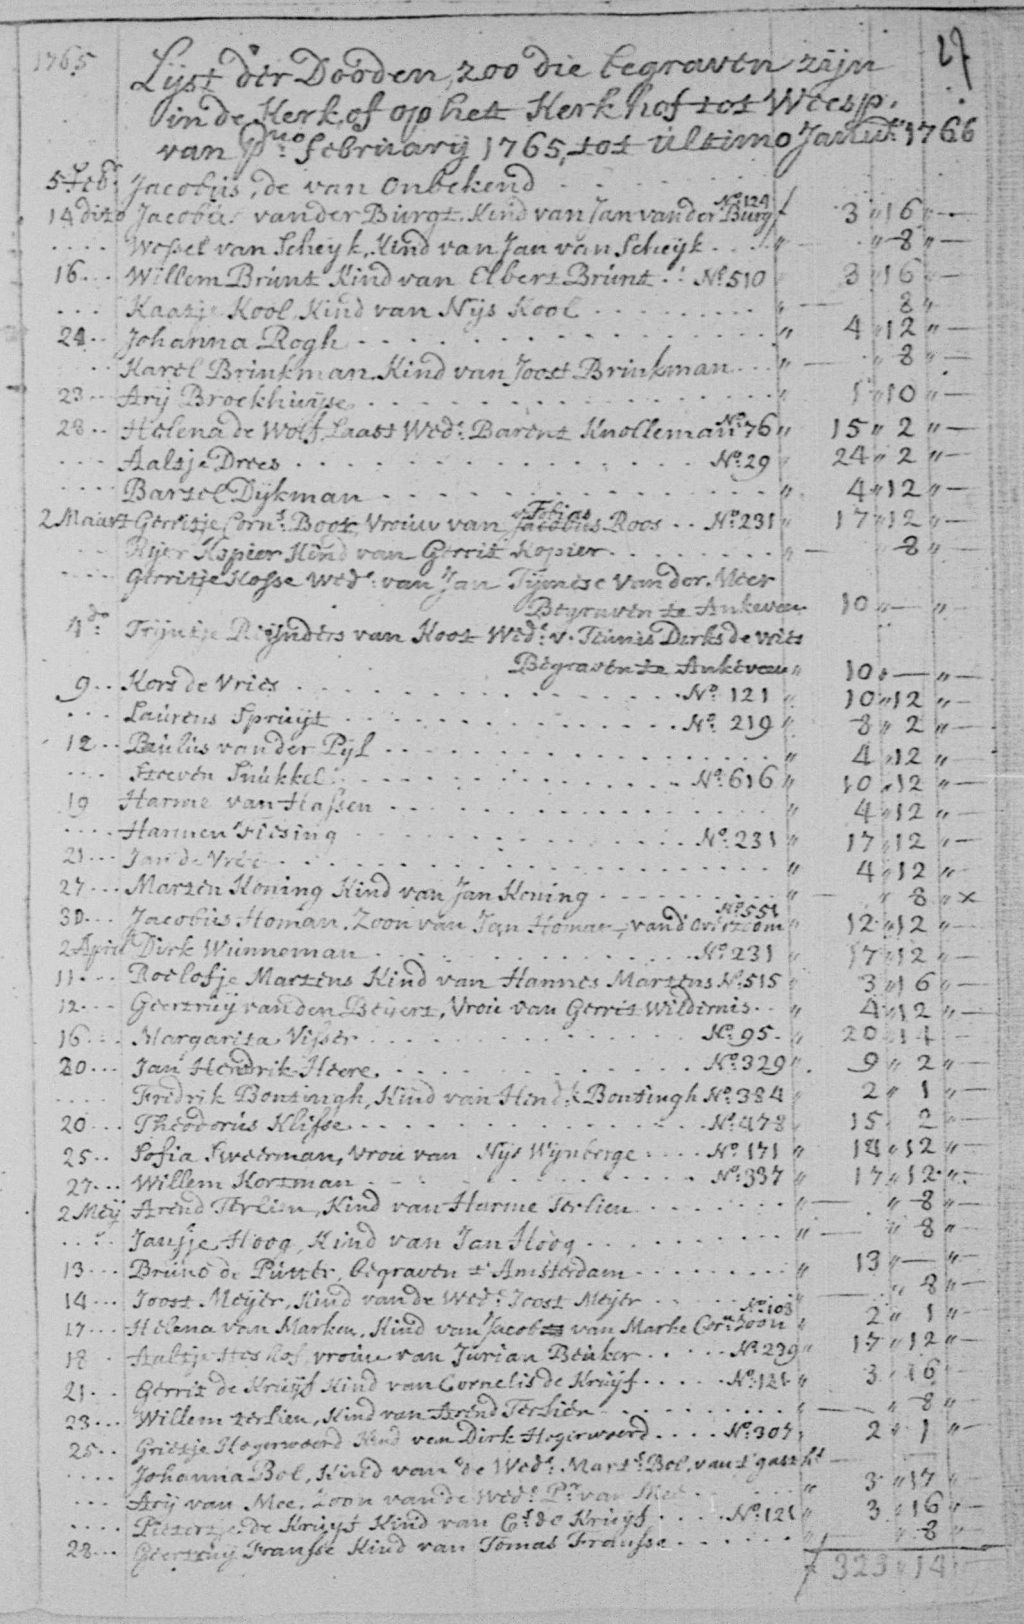 1765 Lijst der Dooden, zoo die begraven zijn 27
in de Kerk of op het Kerkhof tot Weesp.
van Pmo february 1765, tot ultimo Janua. 1766
5 Feb. Jacobus, de van onbekend
14 dito Jacobus vander Burgt. Kind van Jan vander Burg No. 124 f 3 " 16 " —
.... Wessel van Scheyk, Kind van Jan van Scheyk . . . " — " 8 " —
16 ... Willem Brunt Kind van Elbert Brunt . . No. 510 " 3 16 " —
... Kaatje Kool Kind van Nijs Kool " — 8 "
24 .. Johanna Rogh " 4 " 12 " —
Karel Brinkman. Kind van Joost Brinkman ... " — " 8 " —
23 .. Arij Broekhuijse " 1 " 10 " —
28 .. Helena de Wolf, Laast Wed. Barent Knolleman No. 76 " 15 " 2 " —
... Aaltje Drees No. 29 " 24 " 2 " —
.... Bartel Dijkman " 4 " 12 " —
2 Maart Gerritje Corns. Boot, Vrouw van Jacobus Tobias Roos .. No. 231 " 17 " 12 " —
... Rijer Kopier Kind van Gerrit Kopier " — " 8 " —
.... Gerritje Hosse Wed. van Jan Tijmese van der Meer
Begraven te Ankeveen 10 " — "
4 do. Trijntje Reijnders van Koot Wed. v. Teunis Dirks de Vries
Begraven te Ankeveen " 10 " — " —
9 .. Kors de Vries No. 121 " 10 " 12 " —
... Laurens Spruijt No. 219 " 8 " 2 " —
12 .. Paulus vander Pijl " 4 " 12 " —
... Steven Snukkel No. 616 " 10 " 12 " —
19 Harme van Hassen " 4 " 12 " —
.... Harmen Hiesing No. 231 " 17 " 12 " —
21 ... Jan de Vries " 4 " 12 " —
27 ... Marten Koning Kind van Jan Koning " — " 8 " x
30 ... Jacobus Homan. Zoon van Jan Homan, vand' overtoom No. 551 " 12 " 12 " —
2 April Dirk Wunneman No. 231 " 17 " 12 " —
11 ... Roelofje Martens Kind van Hannes Martens No. 515 " 3 " 16 " —
12 ... Geertruy vanden Beyert, Vrou van Gerrit Wildernis .. " 4 " 12 " —
16 ... Margarita Visser No. 95. " 20 " 14 —
20 ... Jan Hendrik Heere. No. 329 " 9 " 2 " —
.... Fredrik Bontingh, Kind van Hendk. Bontingh No. 384 " 2 " 1 " —
20 ... Theodorus Klisse No. 478 " 15 " 2 " —
25 .. Sofia Sweerman, Vrou van Nijs Wijnberge No. 171 " 18 " 12 " —
27 ... Willem Kortman No. 337 " 17 " 12 " —
2 Meij Arend Terlien, Kind van Harme Terlien " — " 8 " —
... Jansje Hoog, Kind van Jan Hoog " — " 8 " —
13 ... Bruno de Putter, begraven t' Amsterdam " 13 " — " —
14 ... Joost Meijer, Kind van de Wed. Joost Meijer " — " 8 " —
17 ... Helena van Marken, Kind van Jacob van Marke Corn. Zoon No. 108 " 2 " 1 " —
18 . Aaltje Hoskof, vrouw van Jurian Beuker No. 239 " 17 " 12 " —
21 .. Gerrit de Kruijf Kind van Cornelis de Kruijf No. 121 " 3 " 16 "
23 ... Willem terlien, Kind van Arend Terlien " — " 8 " —
25 .. Grietje Hogerwoerd Kind van Dirk Hogerwoerd No. 307 " 2 " 1 " —
.... Johanna Bol, Kind van de Wed. Mart. Bol, van 't gasth. —
... Arij van Mee, Zoon van de Wed. Pr. van Mee " 3 " 17 "
.... Pietertje de Kruijf Kind van Cs. de Kruijf No. 121 " 3 " 16 " —
28 ... Geertruij Franse Kind van Tomas Franse " — " 8 "
f 323 " 14